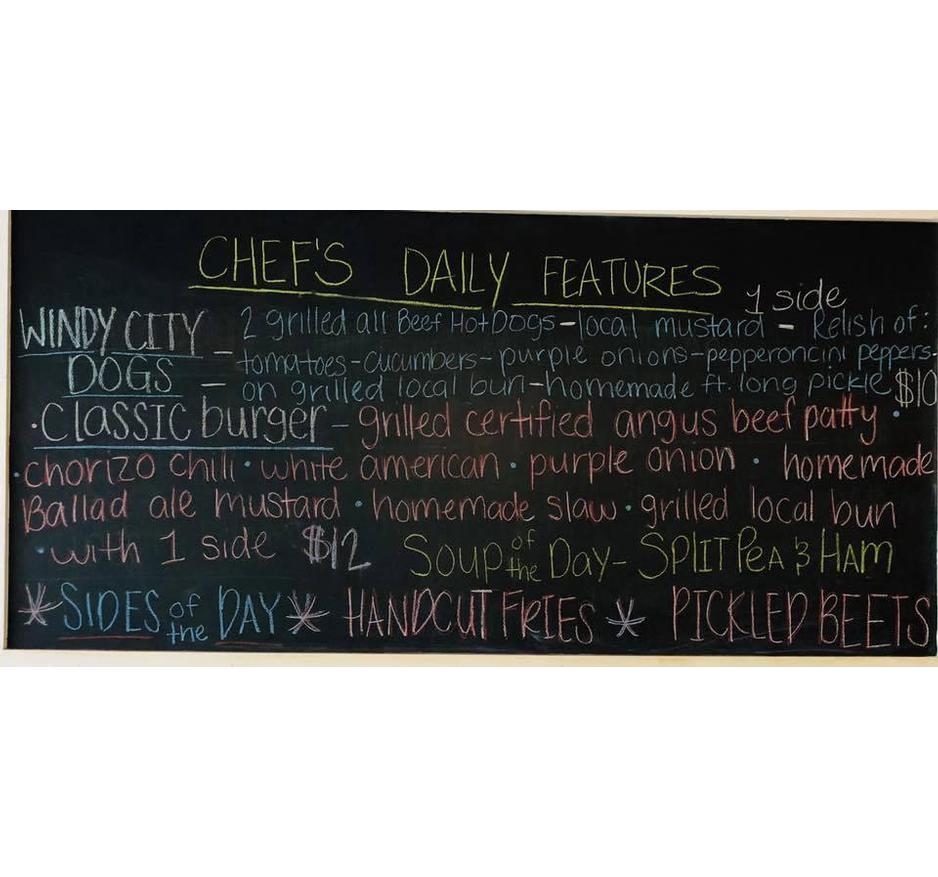 CHEF'S DAILY FEATURES
1 side
WINDY CITY - 2 grilled all Beef Hot Dogs - local mustard - Relish of:
DOGS - tomatoes - cucumbers - purple onions - pepperoncini peppers -
on grilled local bun - homemade ft. long pickle $10
· Classic burger - grilled certified angus beef patty ·
· chorizo chili · white american · purple onion · homemade
Ballad ale mustard · homemade slaw · grilled local bun
· with 1 side $12 Soup of the Day - SPLIT PEA & HAM
* SIDES of the DAY * HANDCUT FRIES * PICKLED BEETS